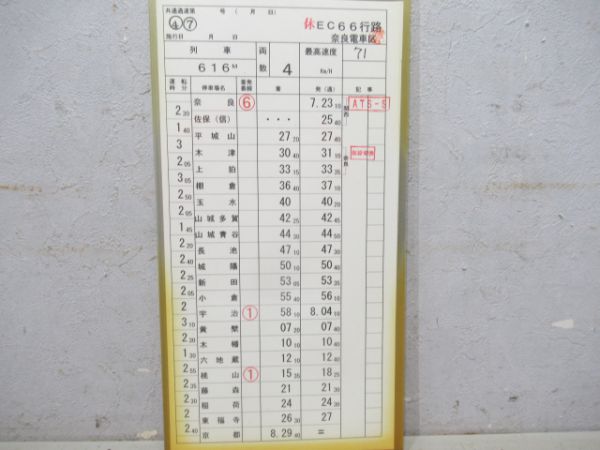 共通過速第 号 ( 月 日)
④⑦ 休EC66行路
施行日 月 日 奈良電車区
列車 両数 最高速度 71
616M 4 Km/H
運転時分 停車場名 着発番線 着 発(通) 記事
奈良 ⑥ 7.23 10 ATS-S
2 20
佐保(信) ・・・ 25 40
1 40
平城山 27 20 27 40
3
木津 30 40 31 10
2 05
上狛 33 15 33 35
3 05
棚倉 36 40 37 10
2 50
玉水 40 40 20
2 05
山城多賀 42 25 42 45
1 45
山城青谷 44 30 44 50
2 20
長池 47 10 47 30
2 40
城陽 50 10 50 40
2 25
新田 53 05 53 35
2 05
小倉 55 40 56 10
2
宇治 ① 58 10 8.04 10
3 10
黄檗 07 20 07 40
2 30
木幡 10 10 10 40
1 30
六地蔵 12 10 12 40
2 55
桃山 ① 15 35 18 25
2 35
藤森 21 21 30
2 30
稲荷 24 24 30
2
東福寺 26 30 27
2 40
京都 8.29 40 =